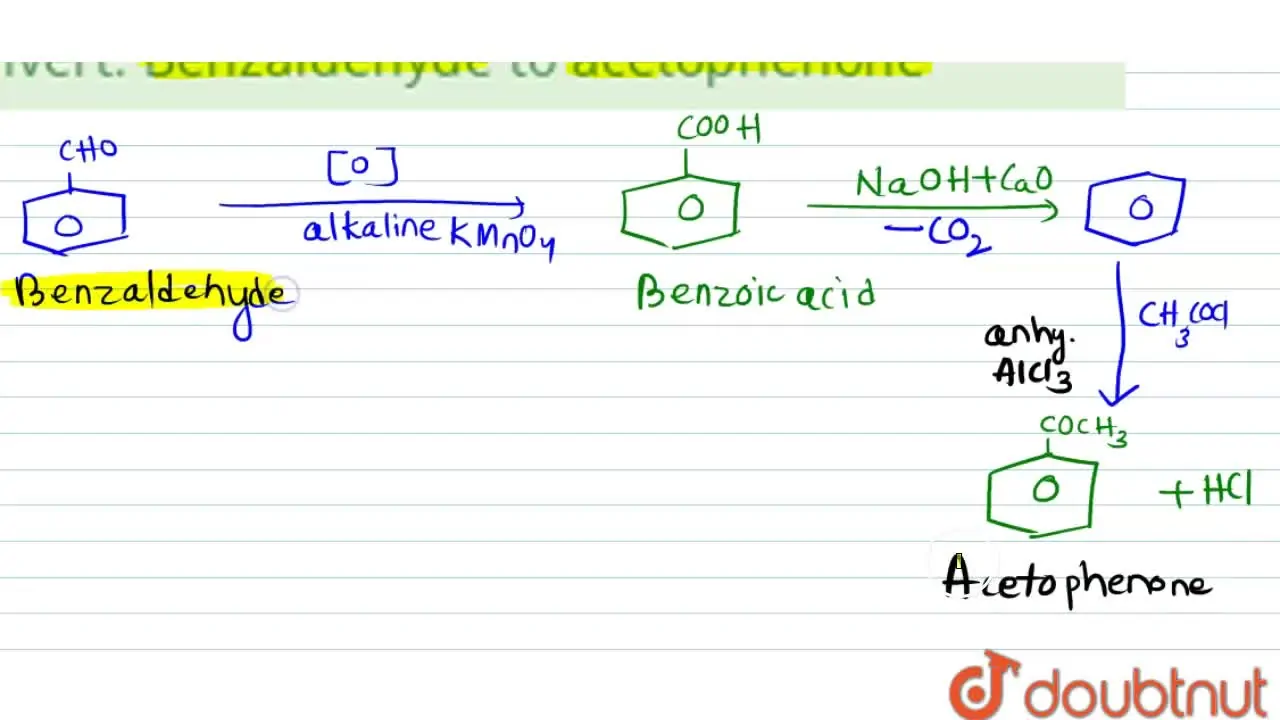 nvert: Benzaldehyde to acetophenone
CHO
[O]
alkaline KMnO4
Benzaldehyde
COOH
Benzoic acid
NaOH+CaO
-CO2
CH3COCl
anhy.
AlCl3
COCH3
+ HCl
Acetophenone
doubtnut